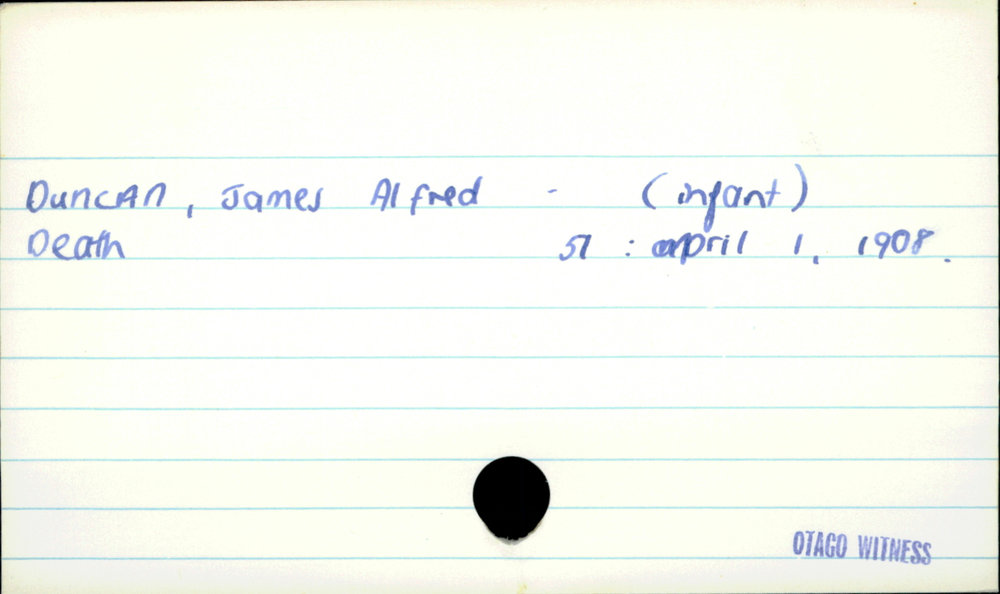 Duncan, James Alfred - (infant)
Death 51 : april 1, 1908.
OTAGO WITNESS